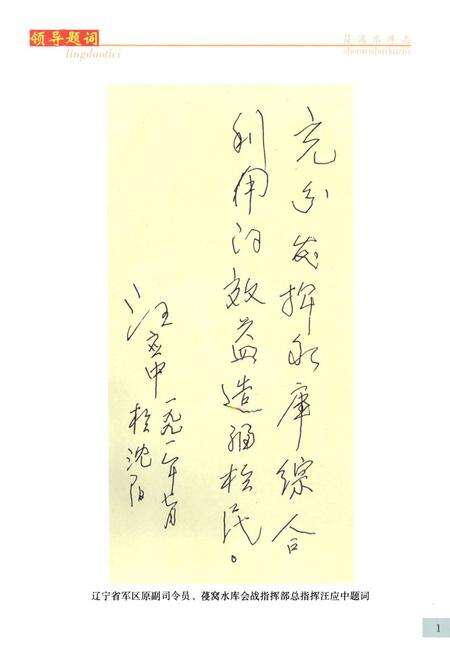 领导题词
lingdaotici
葠窝水库志
shenwoshuikuzhi
充分发挥水库综合
利用的效益造福于民。
汪应中
一九九一年七月
于沈阳
辽宁省军区原副司令员、葠窝水库会战指挥部总指挥汪应中题词
1